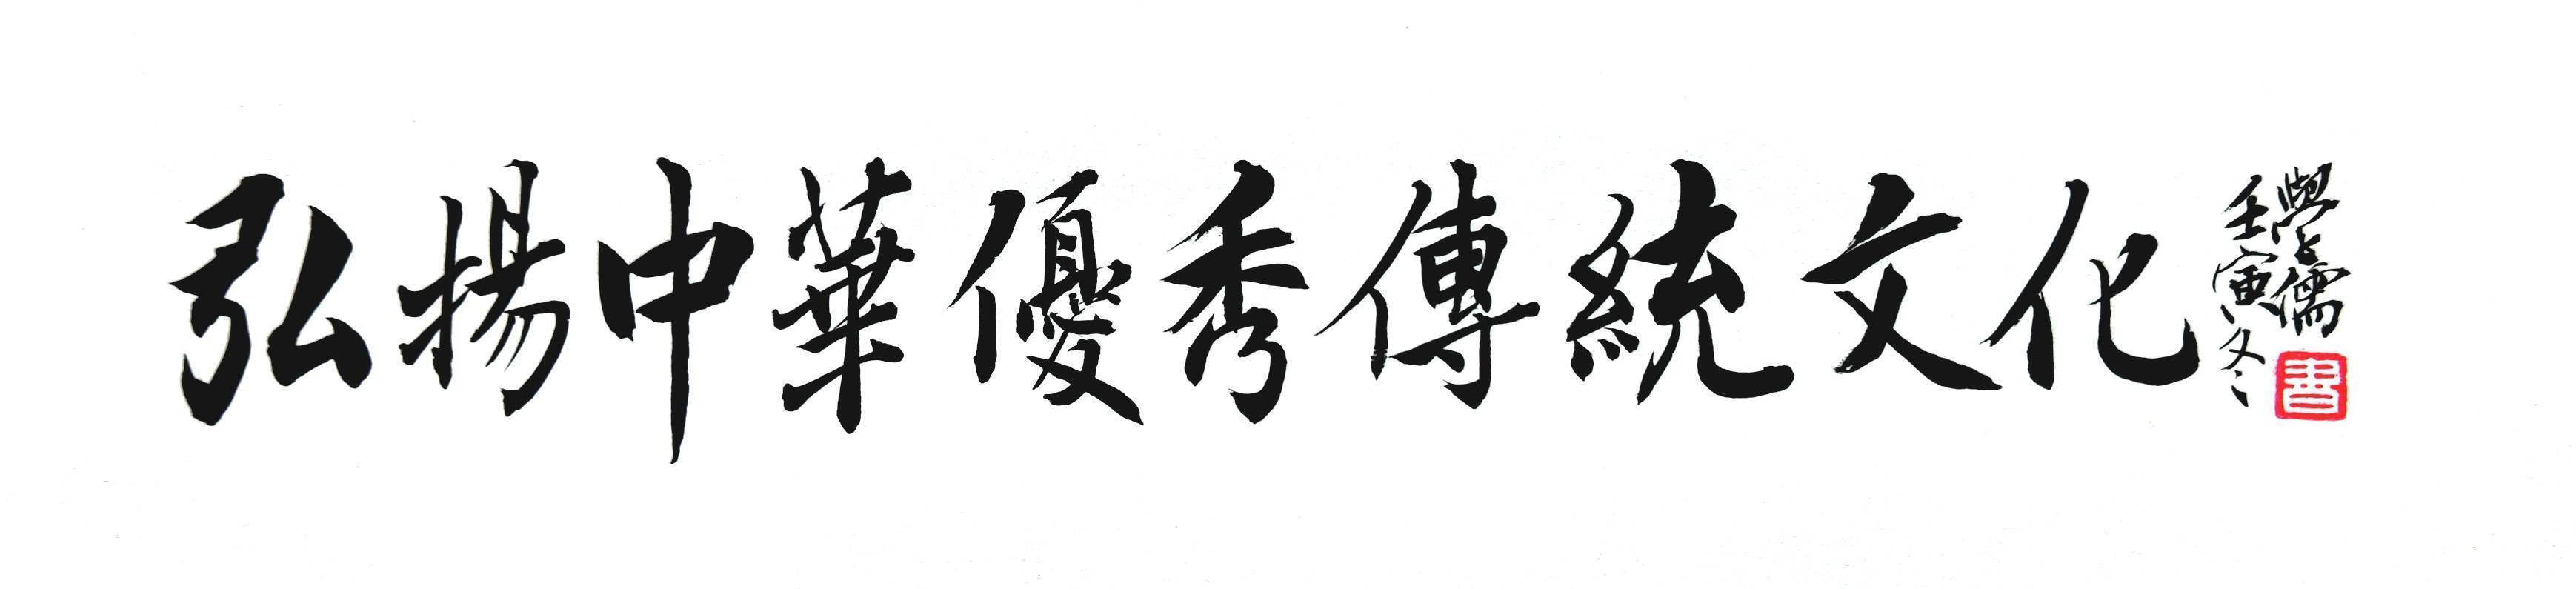 弘揚中華優秀傳統文化
壬寅冬
學儒
書